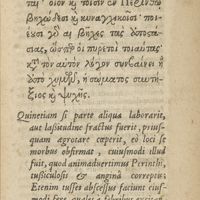 ται· οἷον κỳ τοῖσιν ἐν Περίνθῳ
βηχώδεσι κỳ κυναγχικοῖσι· ποι-
έουσι δὲ αἱ βῆχες τὰς ὑποστα-
σιας, ὥσπερ οἱ πυρετοί· ταῦτα
τὸν αὐτὸν λόγον συμβαίνει ἢ
ἀπὸ χυμῶν, ἢ σώματος συντή-
ξιος κỳ ψυχῆς.
Quinetiam si parte aliqua laborarit,
aut lassitudine fractus fuerit, prius-
quam agrotare cœperit, eò loci se
morbus obfirmat, cuiusmodi illud
fuit, quod animaduertimus Perinthi,
tussiculosis & anginâ correptis.
Etenim tusses abscessus faciunt eius-
modi fere, quales à febribus exci-